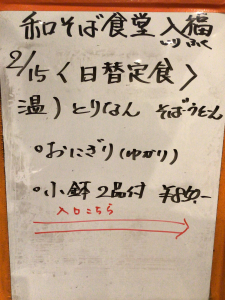 和そば食堂 入福
いりふく
2/15〈日替定食〉
温)とりなん そば・うどん
•おにぎり(ゆかり)
•小鉢2品付 ¥850-
入口こちら